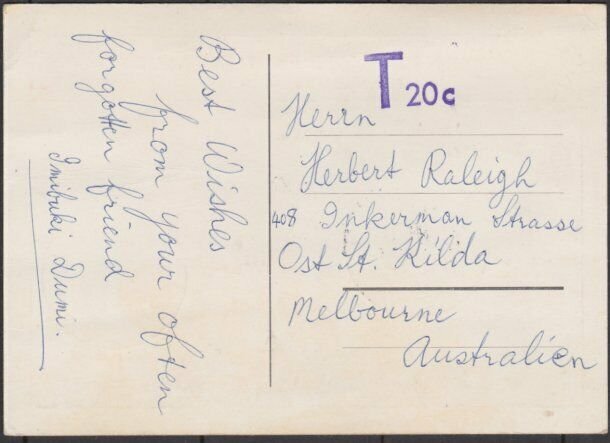 Best Wishes
from your often
forgotten friend
Imibuki Dumi.
T 20c
Herrn
Herbert Raleigh
408 Inkerman Strasse
Ost St. Kilda
Melbourne
Australien